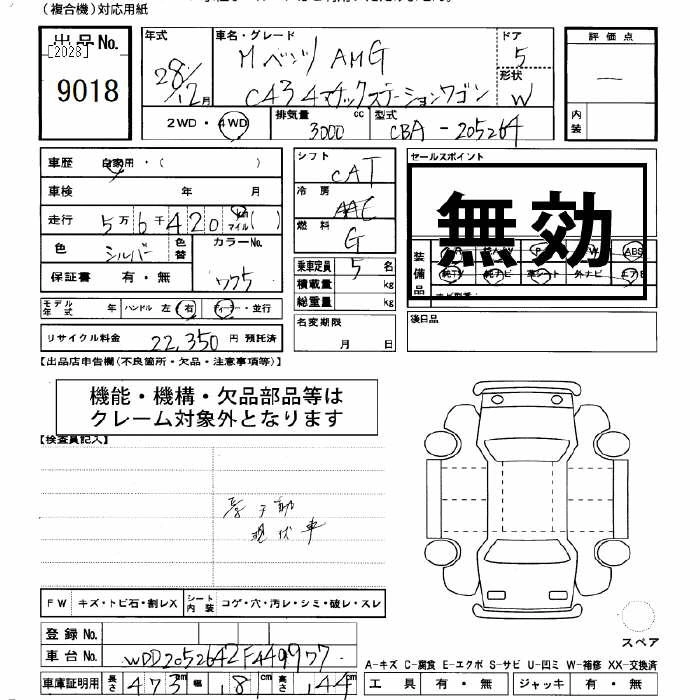 (複合機)対応用紙
出品No. 年式 車名・グレード ドア 評価点
[2028] Mベンツ AMG 5
9018 28/12月 C43 4マチックステーションワゴン 形状 W 一
2WD・4WD 排気量 3000 cc 型式 CBA-205264 内装
車歴 自家用・( ) シフト CAT セールスポイント
車検 年 月 冷房 AAC
無効
走行 5万6千420 km マイル( ) 燃料 G
色 シルバー 色替 カラーNo. 775 乗車定員 5名 装備品 ABS
保証書 有・無 積載量 kg 純TV 純ナビ 革シート 外ナビ エアB
モデル年式 年 ハンドル 左 右 ディーラー・並行 総重量 kg
リサイクル料金 22,350円 預託済 名変期限 月 日 後日品
【出品店申告欄(不良箇所・欠品・注意事項等)】
機能・機構・欠品部品等は
クレーム対象外となります
【検査員記入】
現状車
FW キズ・トビ石・割レX シート内装 コゲ・穴・汚レ・シミ・破レ・スレ
登録No.
スペア
車台No. WDD2052642F449977
A-キズ C-腐食 E-エクボ S-サビ U-凹ミ W-補修 XX-交換済
車庫証明用 長さ 473cm 幅 181cm 高さ 144cm 工具 有・無 ジャッキ 有・無